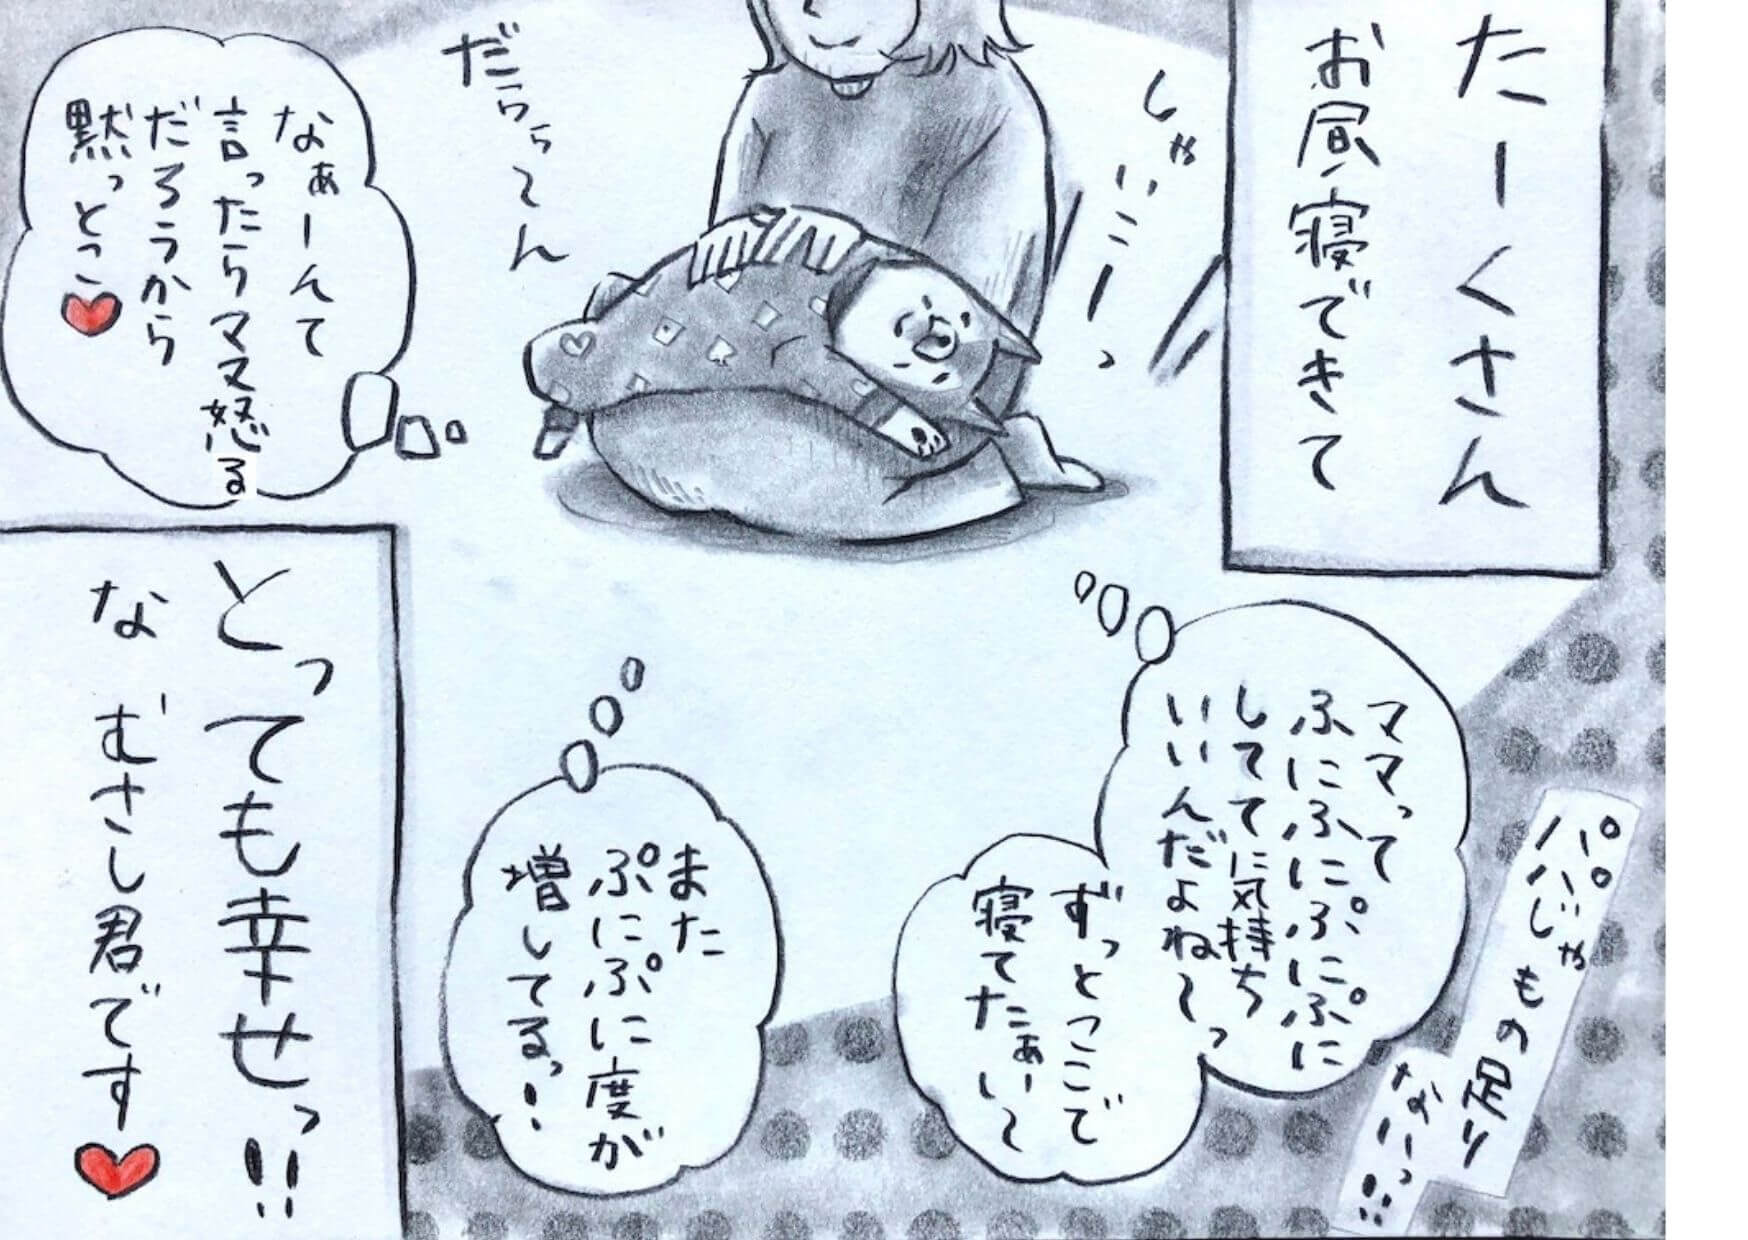 たーくさん
お昼寝できて
しゃいこーっ
だららーん
なぁーんて
言ったらママ怒る
だろうから
黙っとこ♥
ママって
ふにふにぷにぷに
してて気持ち
いいんだよね〜っ
ずっとここで
寝てたぁーい〜
また
ぷにぷに度が
増してるっ!
パパじゃもの足り
ないっ!!
とっても幸せっ!!
な むさし君です♥